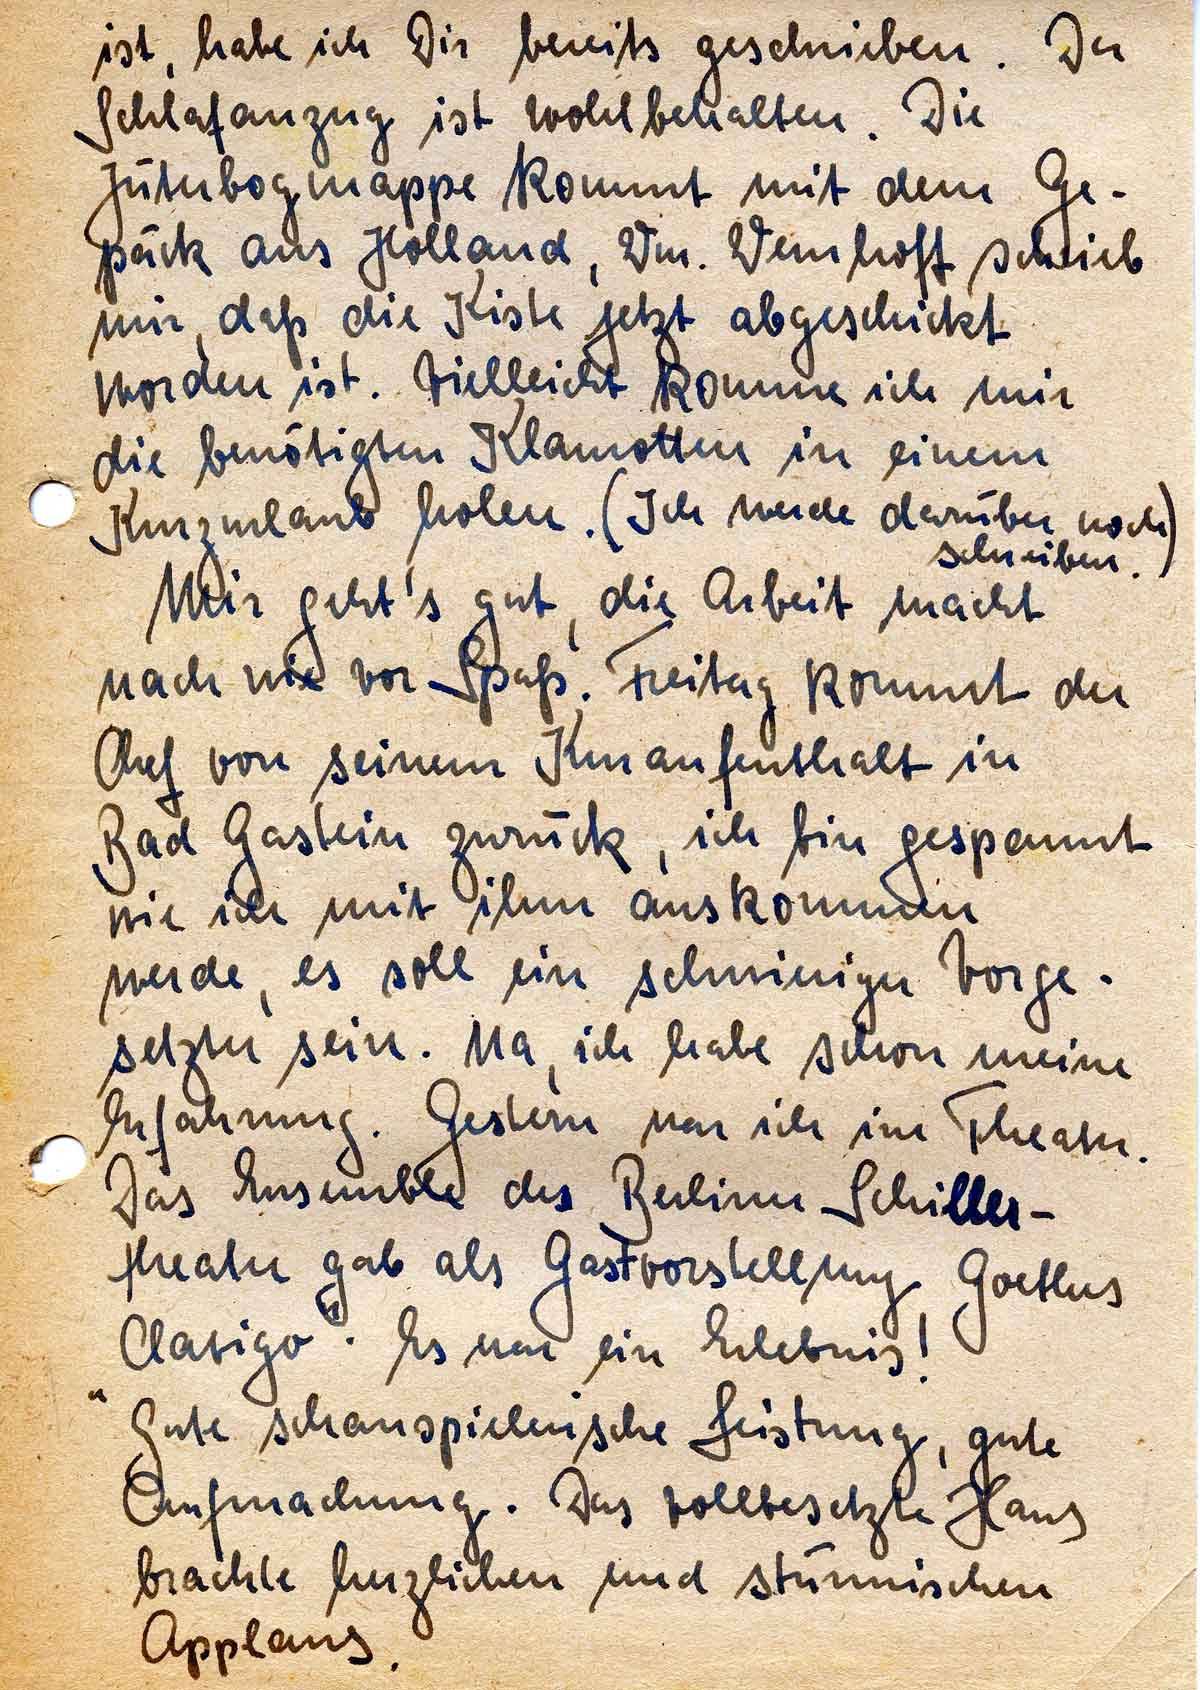 ist, habe ich Dir bereits geschrieben. Der
Schlafanzug ist wohlbehalten. Die
Jüterbogmappe kommt mit dem Ge-
päck aus Holland, Wm. Wemhoff schrieb
mir, daß die Kiste jetzt abgeschickt
worden ist. Vielleicht komme ich mir
die benötigten Klamotten in einem
Kurzurlaub holen. (Ich werde darüber noch
schreiben.)
Mir geht's gut, die Arbeit macht
nach wie vor Spaß. Freitag kommt der
Chef von seinem Kuraufenthalt in
Bad Gastein zurück, ich bin gespannt
wie ich mit ihm auskommen
werde, es soll ein schwieriger Vorge-
setzter sein. Na, ich habe schon meine
Erfahrung. Gestern war ich im Theater.
Das Ensemble des Berliner Schiller-
theater gab als Gastvorstellung Goethes
„Clavigo“. Es war ein Erlebnis!
Gute schauspielerische Leistung, gute
Aufmachung. Das vollbesetzte Haus
brachte herzlichen und stürmischen
Applaus.